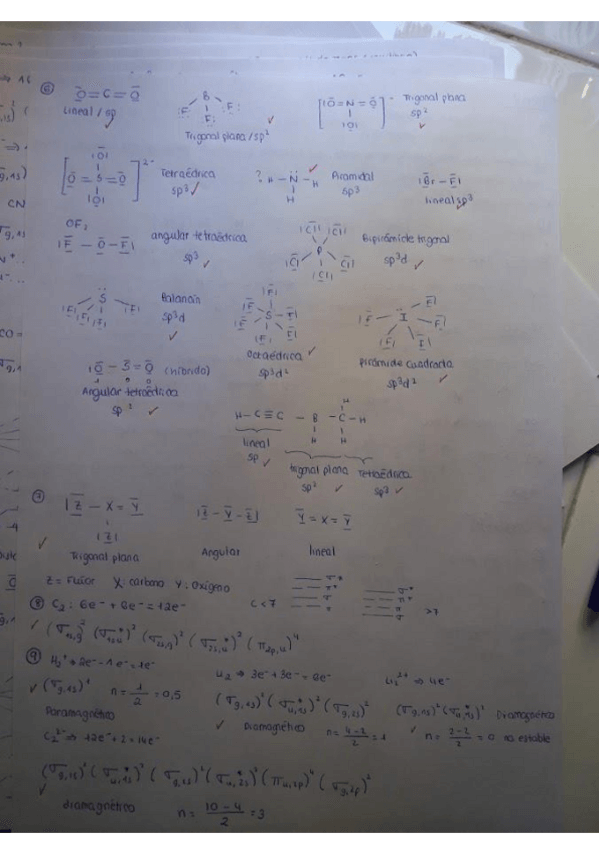 ⑥ O=C=O
Lineal / sp
B F F F
Trigonal plana / sp²
[O=N=O O]⁻ Trigonal plana
sp²
[O=S=O O O]²⁻ Tetraédrica
sp³
? H-N-H H Piramidal
sp³
Br-F
lineal sp³
OF₂
F-O-F angular tetraédrica
sp³
Cl Cl P Cl Cl Cl Bipirámide trigonal
sp³d
S F F F F Balancín
sp³d
F F F S F F F
octaédrica
sp³d²
F F I F F F
Pirámide cuadrada
sp³d²
O-S=O (híbrido)
Angular tetraédrica
sp²
H-C≡C - B - C-H
H H H
lineal
sp
trigonal plana
sp²
Tetraédrica
sp³
⑦ Z - X = Y
Z
Trigonal plana
Z-Y-Z
Angular
Y=X=Y
lineal
Z = Fluor X: carbono Y: Oxígeno
σ*
π*
σ
π
C<7
σ*
π*
π
σ
>7
⑧ C₂: 6e⁻ + 6e⁻ = 12e⁻
(σ1s,g)² (σ1s,u*)² (σ2s,g)² (σ2s,u*)² (π2p,u)⁴
⑨ H₂⁺ ⇒ 2e⁻ - 1e⁻ = 1e⁻
(σg,1s)¹ n = 1/2 = 0,5
Paramagnético
Li₂ ⇒ 3e⁻ + 3e⁻ = 6e⁻
(σg,1s)² (σu,1s*)² (σg,2s)²
Diamagnético n = 4-2/2 = 1
Li₂²⁺ ⇒ 4e⁻
(σg,1s)² (σu,1s*)² Diamagnético
n = 2-2/2 = 0 no estable
C₂²⁻ ⇒ 12e⁻ + 2 = 14e⁻
(σg,1s)² (σu,1s*)² (σg,2s)² (σu,2s*)² (πu,2p)⁴ (σg,2p)²
diamagnético n = 10-4/2 = 3